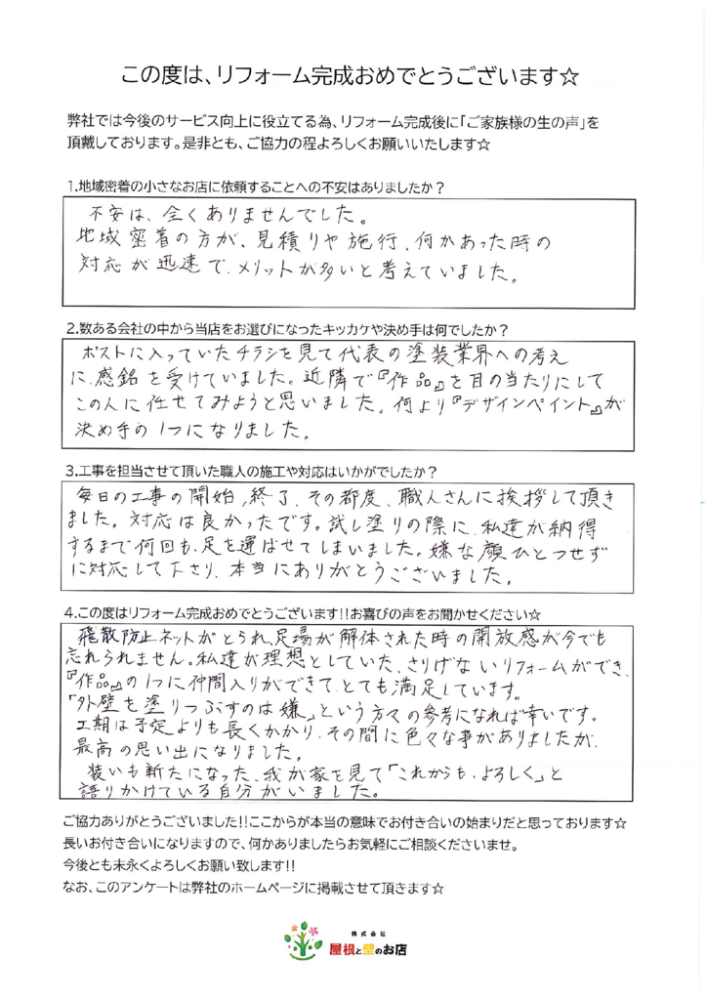 この度は、リフォーム完成おめでとうございます☆
弊社では今後のサービス向上に役立てる為、リフォーム完成後に「ご家族様の生の声」を
頂戴しております。是非とも、ご協力の程よろしくお願いいたします☆
1.地域密着の小さなお店に依頼することへの不安はありましたか？
不安は、全くありませんでした。
地域密着の方が、見積りや施行、何かあった時の
対応が迅速で、メリットが多いと考えていました。
2.数ある会社の中から当店をお選びになったキッカケや決め手は何でしたか？
ポストに入っていたチラシを見て代表の塗装業界への考え
に、感銘を受けていました。近隣で『作品』を目の当たりにして
この人に任せてみようと思いました。何より『デザインペイント』が
決め手の1つになりました。
3.工事を担当させて頂いた職人の施工や対応はいかがでしたか？
毎日の工事の開始、終了、その都度、職人さんに挨拶して頂き
ました。対応は良かったです。試し塗りの際に、私達が納得
するまで何回も、足を運ばせてしまいました。嫌な顔ひとつせず
に対応して下さり、本当にありがとうございました。
4.この度はリフォーム完成おめでとうございます!!お喜びの声をお聞かせください☆
飛散防止ネットがとられ、足場が解体された時の開放感が今でも
忘れられません。私達が理想としていた、さりげないリフォームができ、
『作品』の1つに仲間入りができて、とても満足しています。
「外壁を塗りつぶすのは嫌」という方々の参考になれば幸いです。
工期は予定よりも長くかかり、その間に色々な事がありましたが、
最高の思い出になりました。
装いも新たになった、我が家を見て「これからも、よろしく」と
語りかけている自分がいました。
ご協力ありがとうございました!!ここからが本当の意味でお付き合いの始まりだと思っております☆
長いお付き合いになりますので、何かありましたらお気軽にご相談くださいませ。
今後とも末永くよろしくお願い致します!!
なお、このアンケートは弊社のホームページに掲載させて頂きます☆
株式会社
屋根と壁のお店